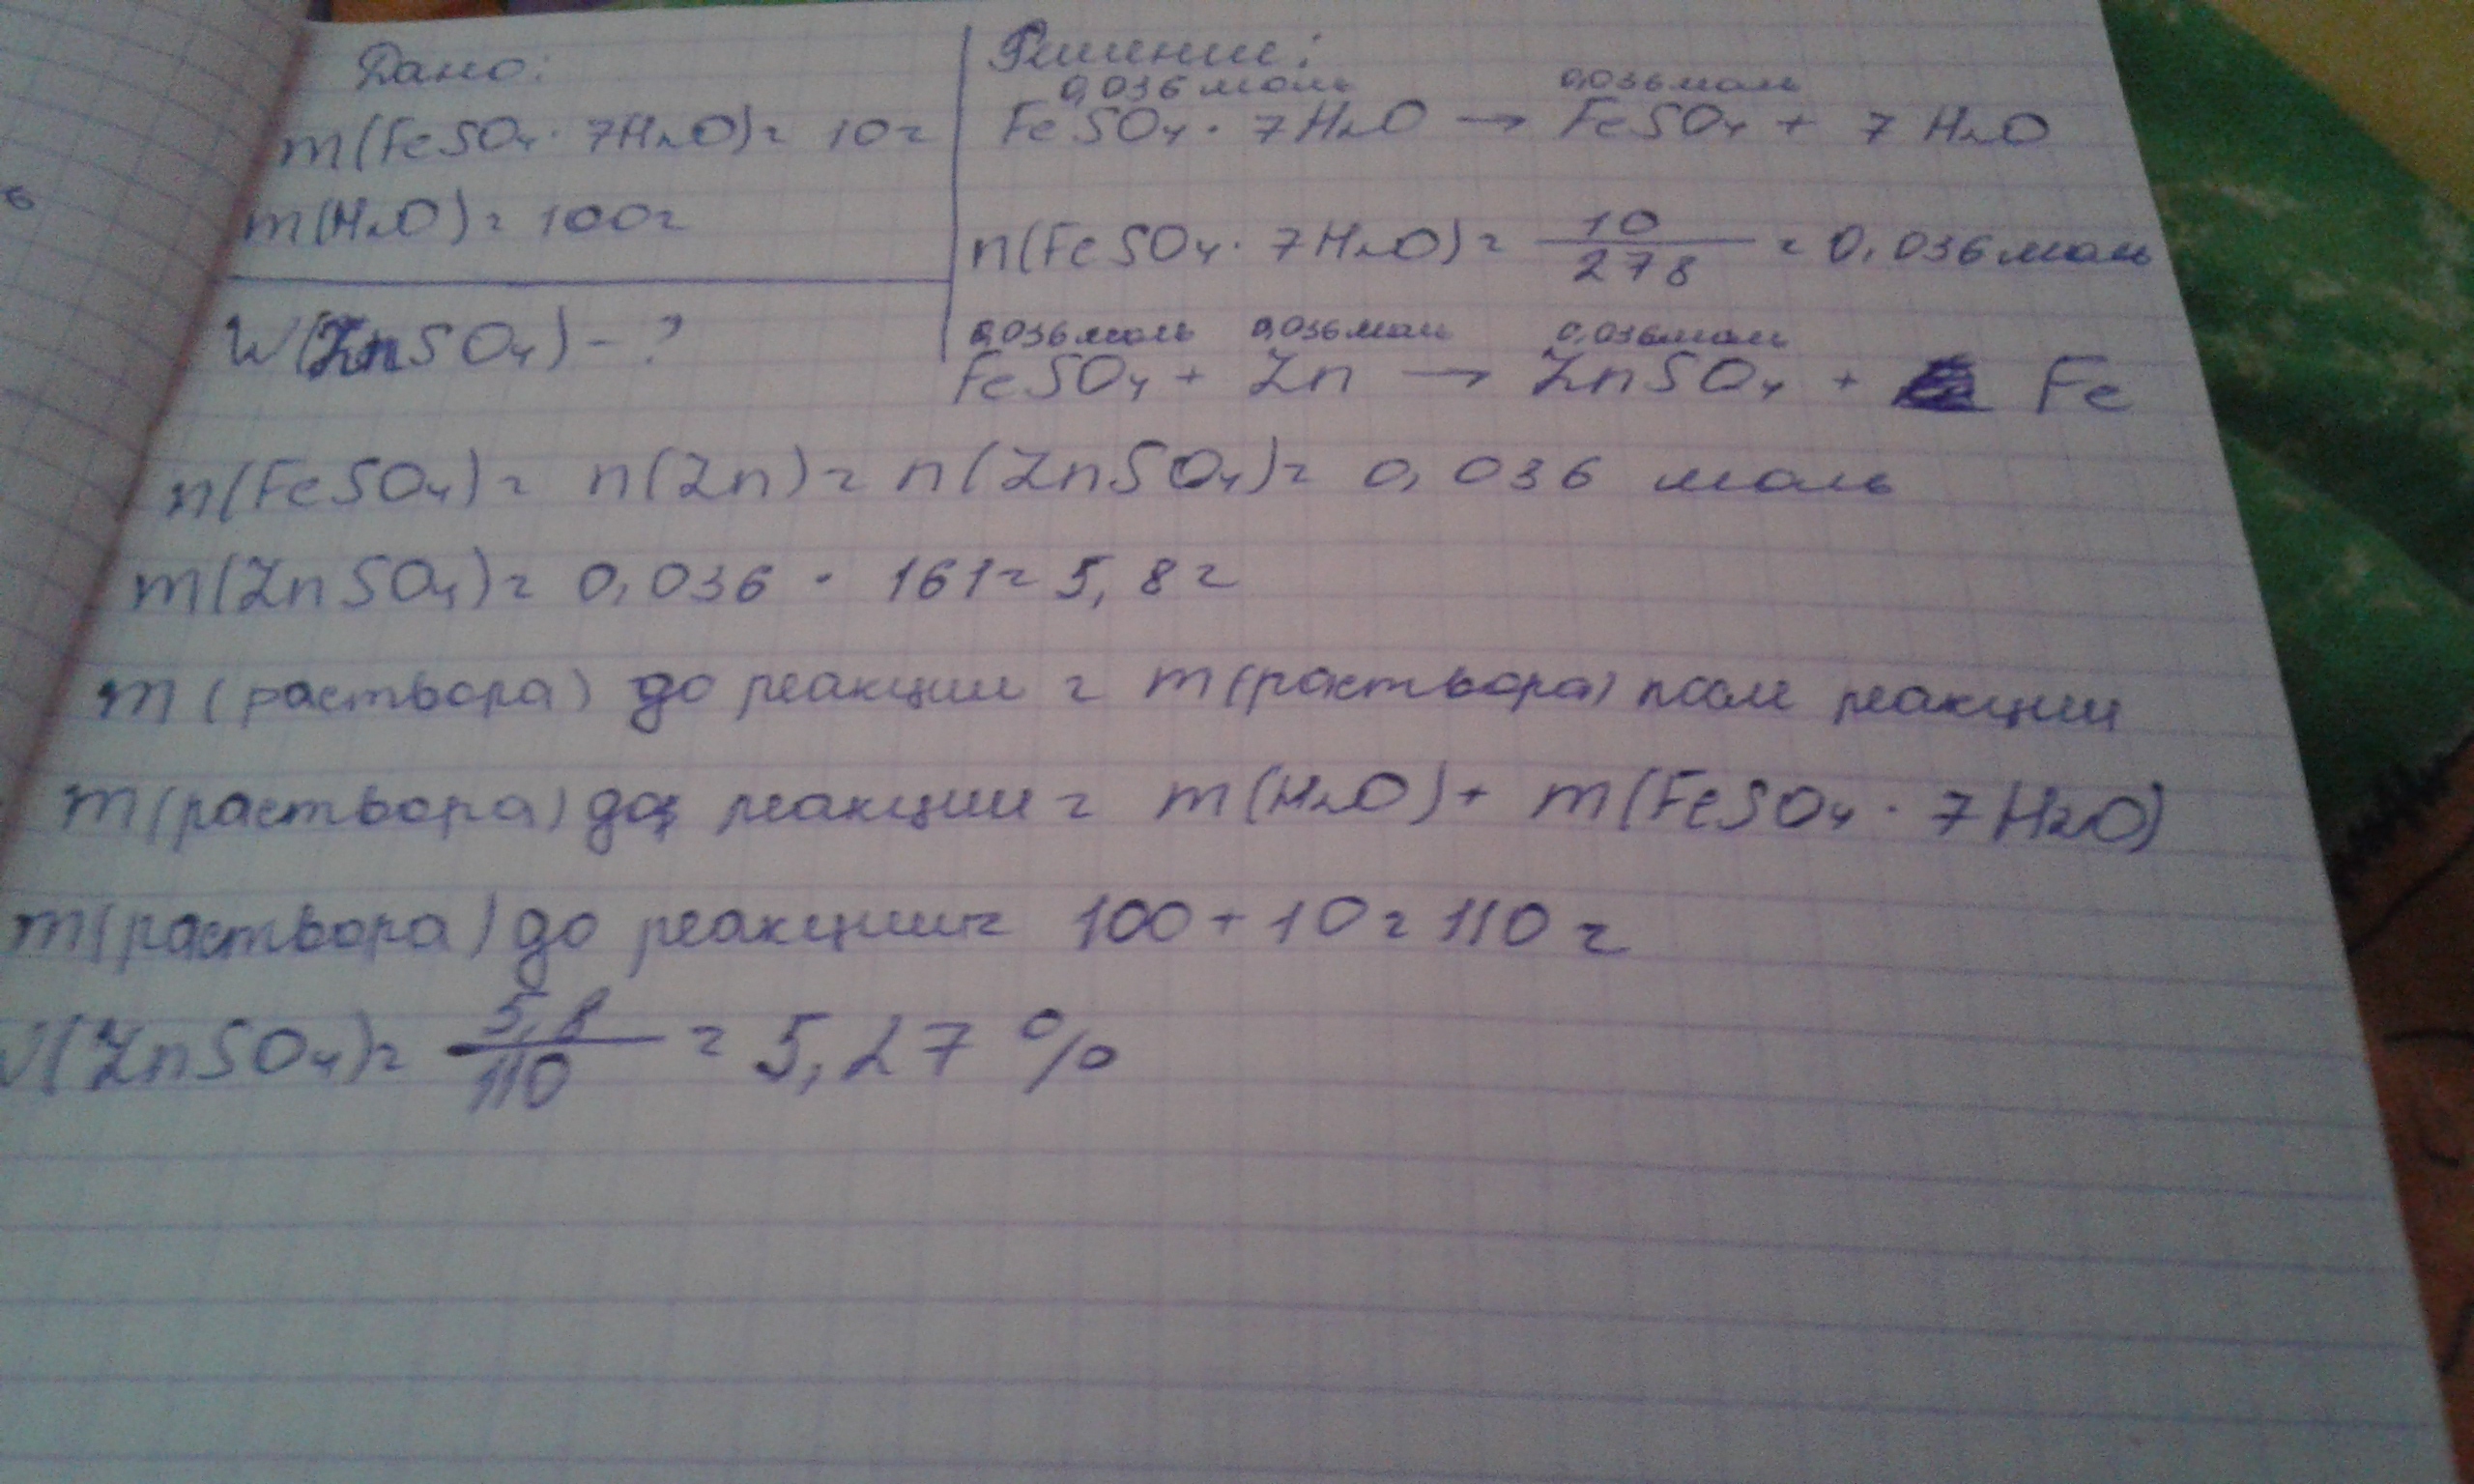 Дано:
m(FeSO₄·7H₂O)= 10г
m(H₂O)= 100г
W(ZnSO₄)-?
Решение:
0,036 моль 0,036 моль
FeSO₄·7H₂O → FeSO₄ + 7H₂O
n(FeSO₄·7H₂O)= 10/278 = 0,036 моль
0,036 моль 0,036 моль 0,036 моль
FeSO₄ + Zn → ZnSO₄ + Fe
n(FeSO₄)= n(Zn)= n(ZnSO₄)= 0,036 моль
m(ZnSO₄)= 0,036 · 161= 5,8г
m(раствора) до реакции = m(раствора) после реакции
m(раствора) до реакции = m(H₂O)+ m(FeSO₄·7H₂O)
m(раствора) до реакции= 100+10=110г
W(ZnSO₄)= 5,8/110 = 5,27 %